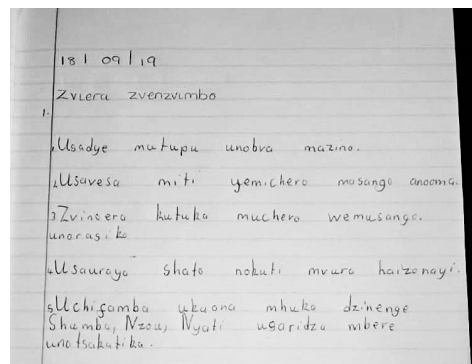 18 | 09 | 19
Zviera zvenzvimbo
1.
1. Usadye mutupu unobva mazino.
2. Usavesa miti yemichero masango anooma.
3 Zvinoera kutuka muchero wemusango.
unorasika
4. Usauraya shato nokuti mvura haizonayi.
5. Uchifamba ukaona mhuka dzinenge
Shumba, Nzou, Nyati usaridza mbere
unotsakatika.